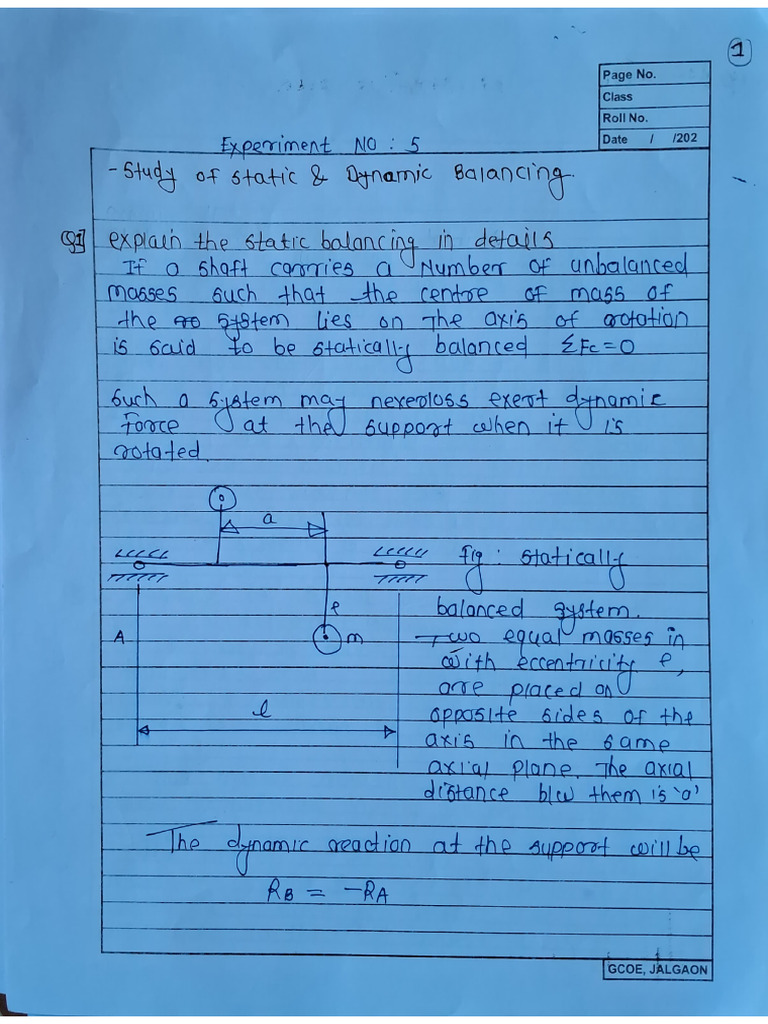 1
Page No.
Class
Roll No.
Date / /202
Experiment NO : 5
- Study of Static & Dynamic Balancing.
Q1] explain the static balancing in details
If a shaft carries a Number of unbalanced
masses such that the centre of mass of
the system lies on The axis of rotation
is said to be statically balanced ΣFc = 0
Such a system may neverloss exert dynamic
force at the support when it is
rotated.
a
Fig : Statically
balanced system.
e
A
m
Two equal masses in
with eccentricity e,
are placed on
l
opposite sides of the
axis in the same
axial plane. The axial
distance b/w them is 'a'
The dynamic reaction at the support will be
RB = -RA
GCOE, JALGAON